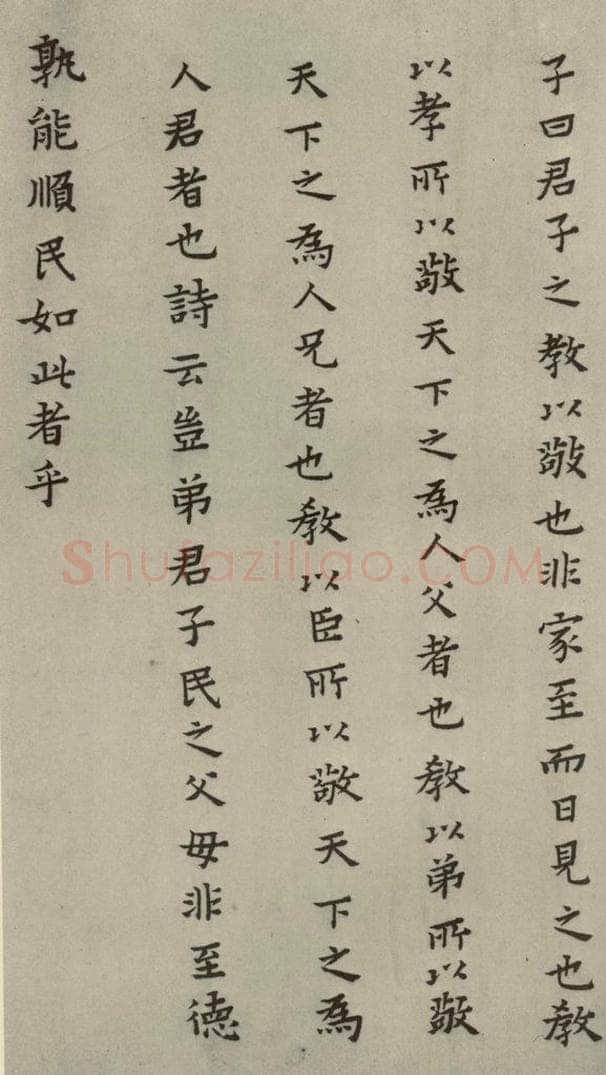 子曰君子之教以敬也非家至而日見之也教
以孝所以敬天下之為人父者也教以弟所以敬
天下之為人兄者也教以臣所以敬天下之為
人君者也詩云豈弟君子民之父母非至德
孰能順民如此者乎
Shufaziliao.COM